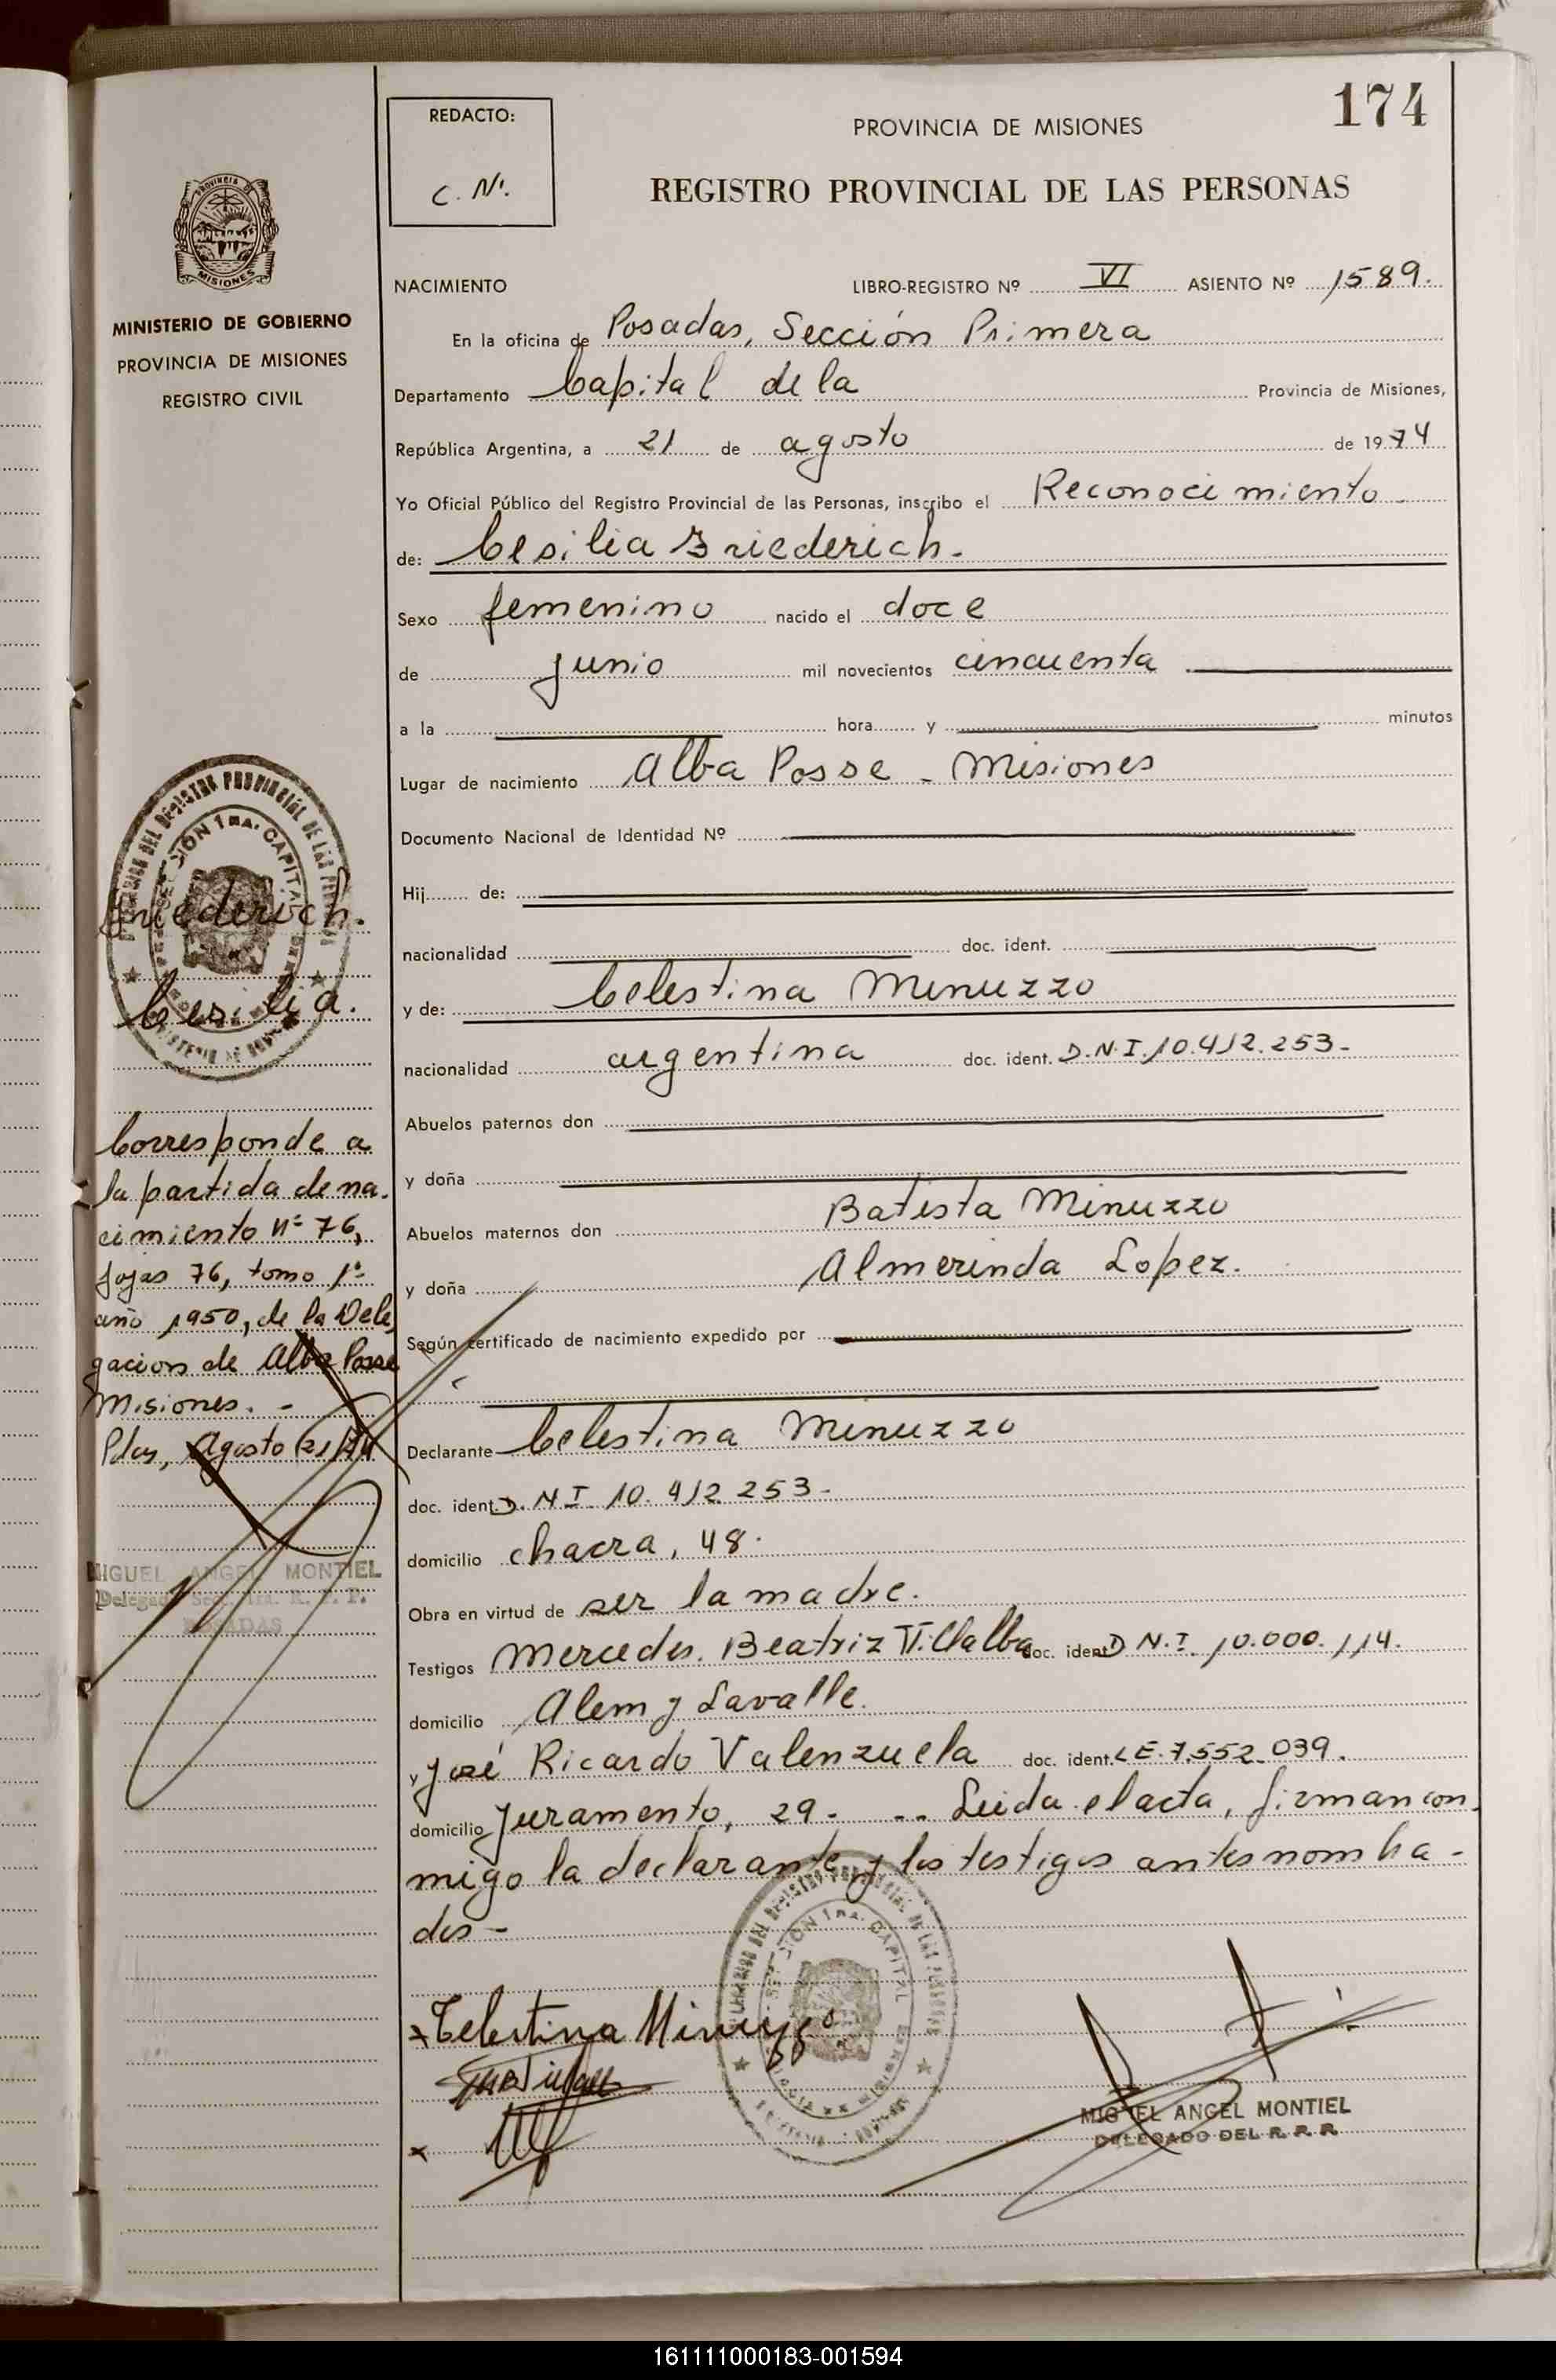 174
REDACTO:
C. N.
PROVINCIA DE MISIONES
REGISTRO PROVINCIAL DE LAS PERSONAS
MISIONES
MINISTERIO DE GOBIERNO
PROVINCIA DE MISIONES
REGISTRO CIVIL
NACIMIENTO LIBRO-REGISTRO Nº VI ASIENTO Nº 1589.
En la oficina de Posadas, Sección Primera
Departamento Capital de la Provincia de Misiones,
República Argentina, a 21 de agosto de 1974
Yo Oficial Público del Registro Provincial de las Personas, inscribo el Reconocimiento
de: Cesilia Friederich.
Sexo femenino nacido el doce
de junio mil novecientos cincuenta
a la hora y minutos
Lugar de nacimiento Alba Posse - Misiones
Documento Nacional de Identidad Nº
Hij de:
nacionalidad doc. ident.
y de: Celestina Minuzzo
nacionalidad argentina doc. ident. D.N.I. 10.412.253-
Abuelos paternos don
y doña
Abuelos maternos don Batista Minuzzo
y doña Almerinda Lopez.
Según certificado de nacimiento expedido por
Declarante Celestina Minuzzo
doc. ident. D.N.I. 10.412.253-
domicilio chacra, 48.
Obra en virtud de ser la madre.
Testigos Mercedes Beatriz Villalba doc. ident D.N.I. 10.000.114.
domicilio Alem y Lavalle.
y José Ricardo Valenzuela doc. ident. L.E. 7.552.039.
domicilio Juramento, 29. - Leida el acta, firman con
migo la declarante y los testigos antes nomba-
dos-
Celestina Minuzzo
MIGUEL ANGEL MONTIEL
DELEGADO DEL R. P. P.
Friederich.
Cesilia.
Corresponde a
la partida de na-
cimiento nº 76,
fojas 76, tomo 1º
año 1950, de la Dele
gacion de Alba Posse
Misiones. -
Pdas, Agosto 21/74
MIGUEL ANGEL MONTIEL
Delegado Secc. 1ra. R. P. P.
POSADAS
161111000183-001594